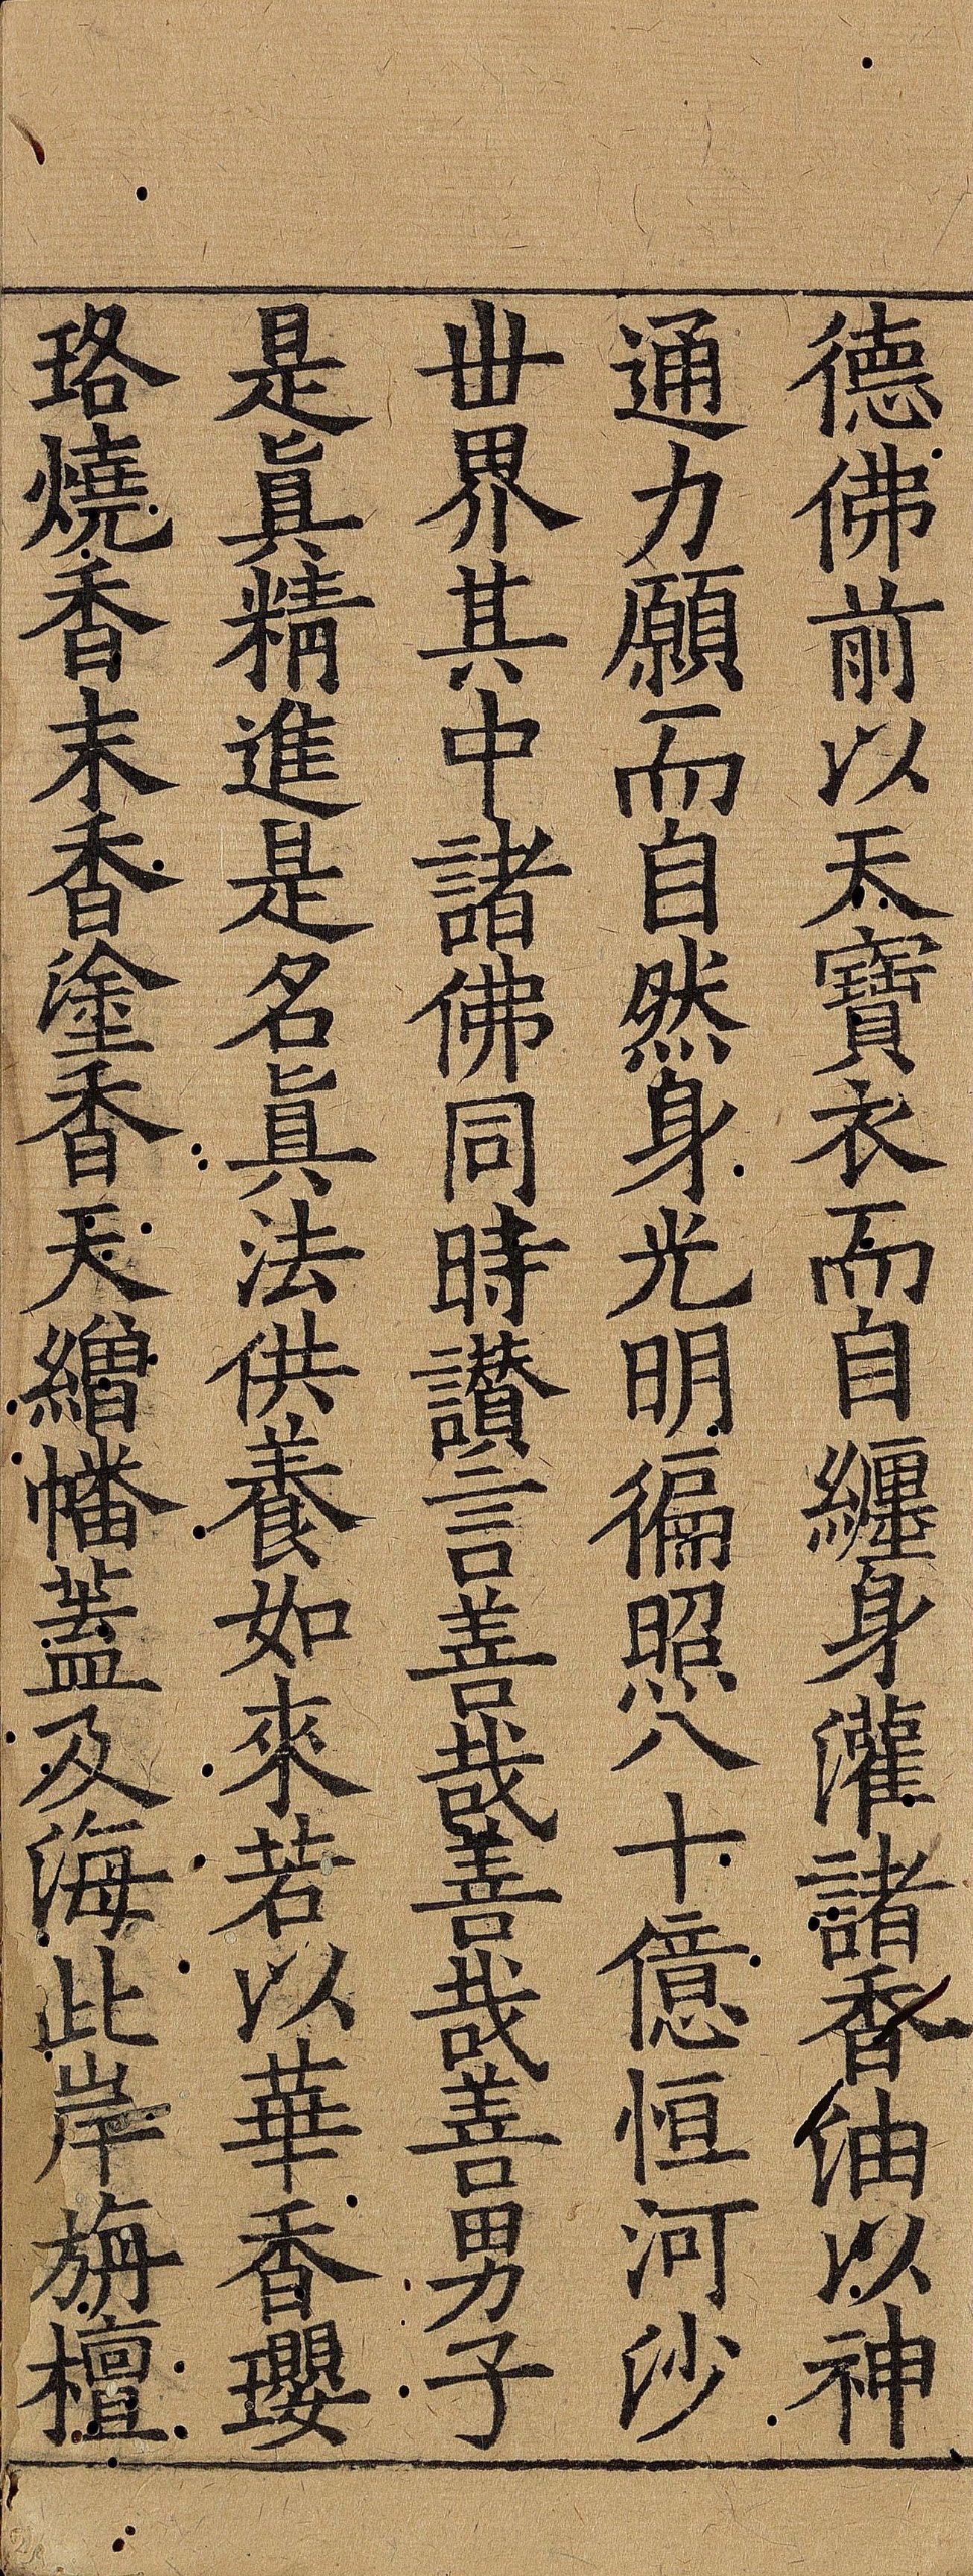 德佛前以天寶衣而自纏身灌諸香油以神
通力願而自然身光明徧照八十億恒河沙
丗界其中諸佛同時讃言善哉善哉善男子
是眞精進是名眞法供養如來若以華香瓔
珞燒香末香塗香天繒幡葢及海此岸栴檀